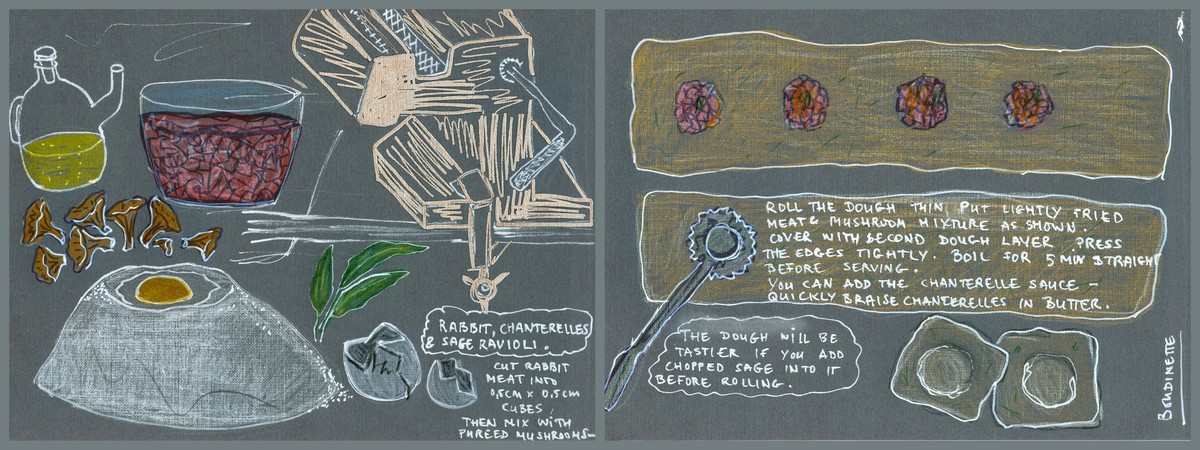 RABBIT, CHANTERELLES
& SAGE RAVIOLI.
CUT RABBIT
MEAT INTO
0,5CM X 0,5CM
CUBES,
THEN MIX WITH
PUREED MUSHROOMS
ROLL THE DOUGH THIN. PUT LIGHTLY FRIED
MEAT & MUSHROOM MIXTURE AS SHOWN.
COVER WITH SECOND DOUGH LAYER. PRESS
THE EDGES TIGHTLY. BOIL FOR 5 MIN STRAIGHT
BEFORE SERVING.
YOU CAN ADD THE CHANTERELLE SAUCE –
QUICKLY BRAISE CHANTERELLES IN BUTTER.
THE DOUGH WILL BE
TASTIER IF YOU ADD
CHOPPED SAGE INTO IT
BEFORE ROLLING.